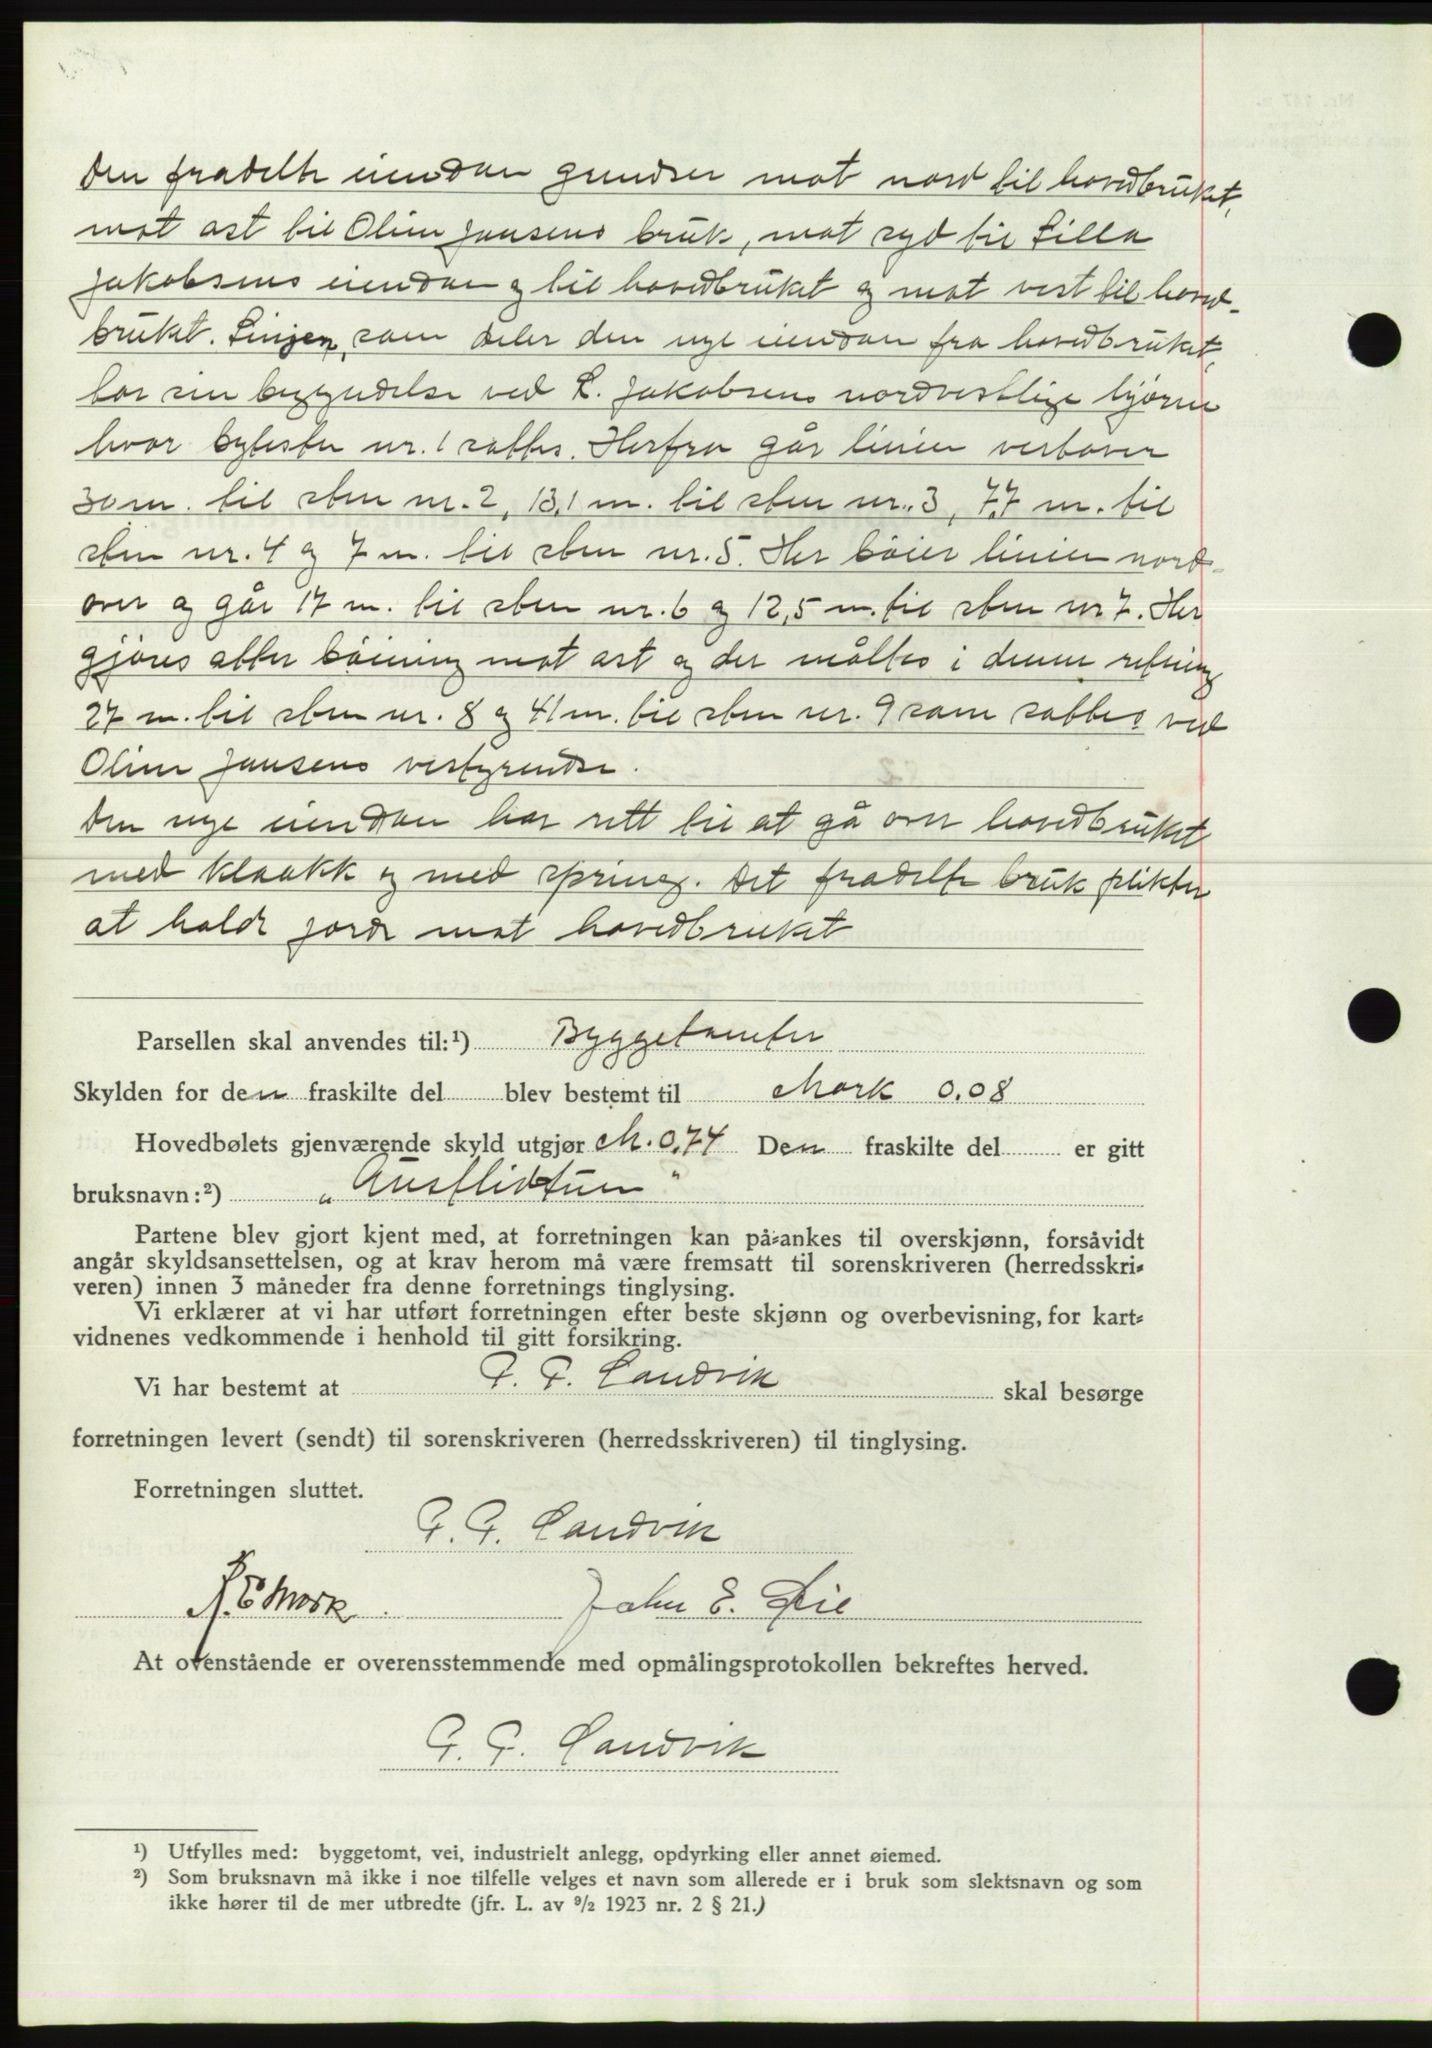 Den fradelte eiendom grendser mot nord til hovedbruket,
mot ost til Oline Jansens bruk, mot syd til Silla
Jakobsens eiendom og til hovedbruket og mot vest til hoved-
bruket. Linjen, som deler den nye eiendom fra hovedbruket,
har sin begyndelse ved L. Jakobsens nordvestlige hjørne
hvor bytesten nr. 1 sattes. Herfra går linien vestover
30 m. til sten nr. 2, 13,1 m. til sten nr. 3, 7,7 m. til
sten nr. 4 og 7 m. til sten nr. 5. Her bøier linien nord-
over og går 17 m. til sten nr. 6 og 12,5 m. til sten nr 7. Her
gjøres atter bøining mot ost og der måltes i denne retning
27 m. til sten nr. 8 og 41 m. til sten nr. 9 som sattes ved
Oline Jansens vestgrendse.
Den nye eiendom har rett til at gå over hovedbruket
med kloakk og med spring. Det fradelte bruk plikter
at holde gjorde mot hovedbruket
Parsellen skal anvendes til:¹) Byggetomter
Skylden for den fraskilte del blev bestemt til Mark 0,08
Hovedbølets gjenværende skyld utgjør M. 0,74 Den fraskilte del er gitt
bruksnavn:²)
Partene blev gjort kjent med, at forretningen kan på-ankes til overskjønn, forsåvidt
angår skyldsansettelsen, og at krav herom må være fremsatt til sorenskriveren (herredsskri-
veren) innen 3 måneder fra denne forretnings tinglysing.
Vi erklærer at vi har utført forretningen efter beste skjønn og overbevisning, for kart-
vidnenes vedkommende i henhold til gitt forsikring.
Vi har bestemt at P. P. Sandvik skal besørge
forretningen levert (sendt) til sorenskriveren (herredsskriveren) til tinglysing.
Forretningen sluttet.
P. P. Sandvik
E Mork John E. Øie
At ovenstående er overensstemmende med opmålingsprotokollen bekreftes herved.
P. P. Sandvik
¹) Utfylles med: byggetomt, vei, industrielt anlegg, opdyrking eller annet øiemed.
²) Som bruksnavn må ikke i noe tilfelle velges et navn som allerede er i bruk som slektsnavn og som
ikke hører til de mer utbredte (jfr. L. av ⁹/₂ 1923 nr. 2 § 21.)